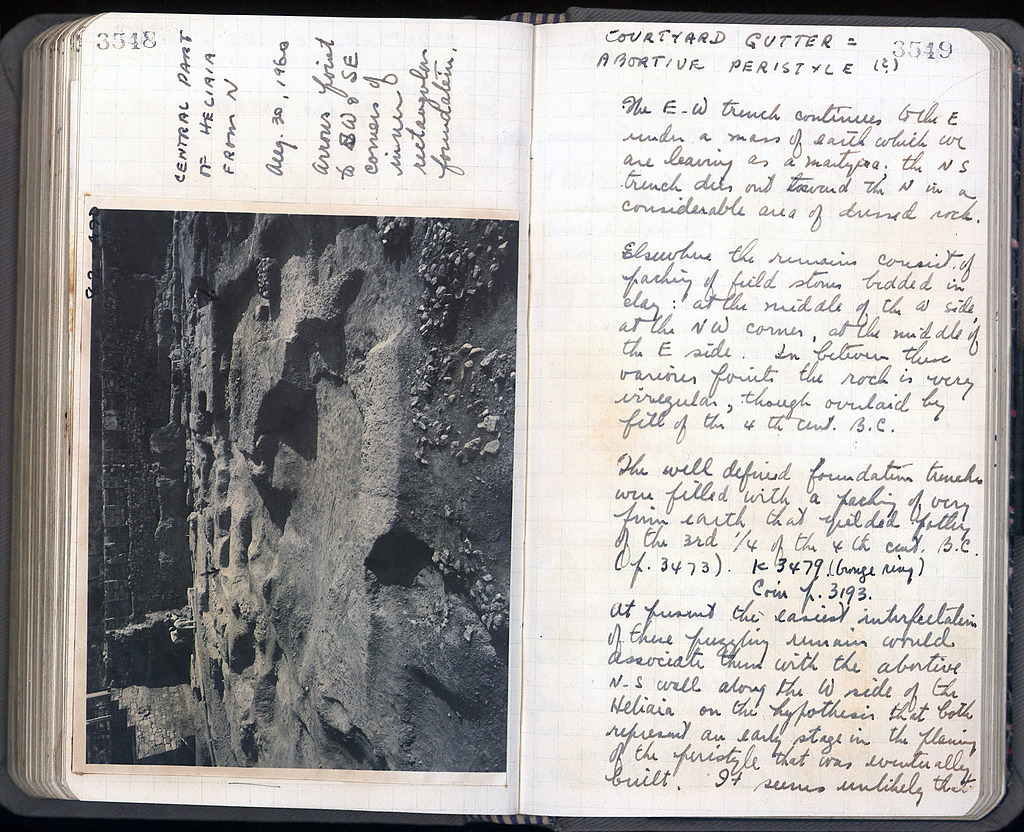 3548
CENTRAL PART
OF HELIAIA
FROM N
Aug. 30, 1960
Arrows point
to SW & SE
corners of
inner
rectangular
foundation.
3549
COURTYARD GUTTER =
ABORTIVE PERISTYLE (?)
The E-W trench continues to the E
under a mass of earth which we
are leaving as a martyra; the N S
trench dies out toward the N in a
considerable area of dressed rock.
Elsewhere the remains consist of
packing of field stones bedded in
clay: at the middle of the W side,
at the NW corner, at the middle of
the E side. In between these
various points the rock is very
irregular, though overlaid by
fill of the 4 th cent. B.C.
The well defined foundation trenches
were filled with a packing of very
firm earth that yielded pottery
of the 3rd 1/4 of the 4 th cent. B.C.
(p. 3473). K 3479 (bronze ring)
Coin p. 3193.
At present the easiest interpretation
of these puzzling remains would
associate them with the abortive
N-S wall along the W side of the
Heliaia on the hypothesis that both
represent an early stage in the planning
of the peristyle that was eventually
built. It seems unlikely that